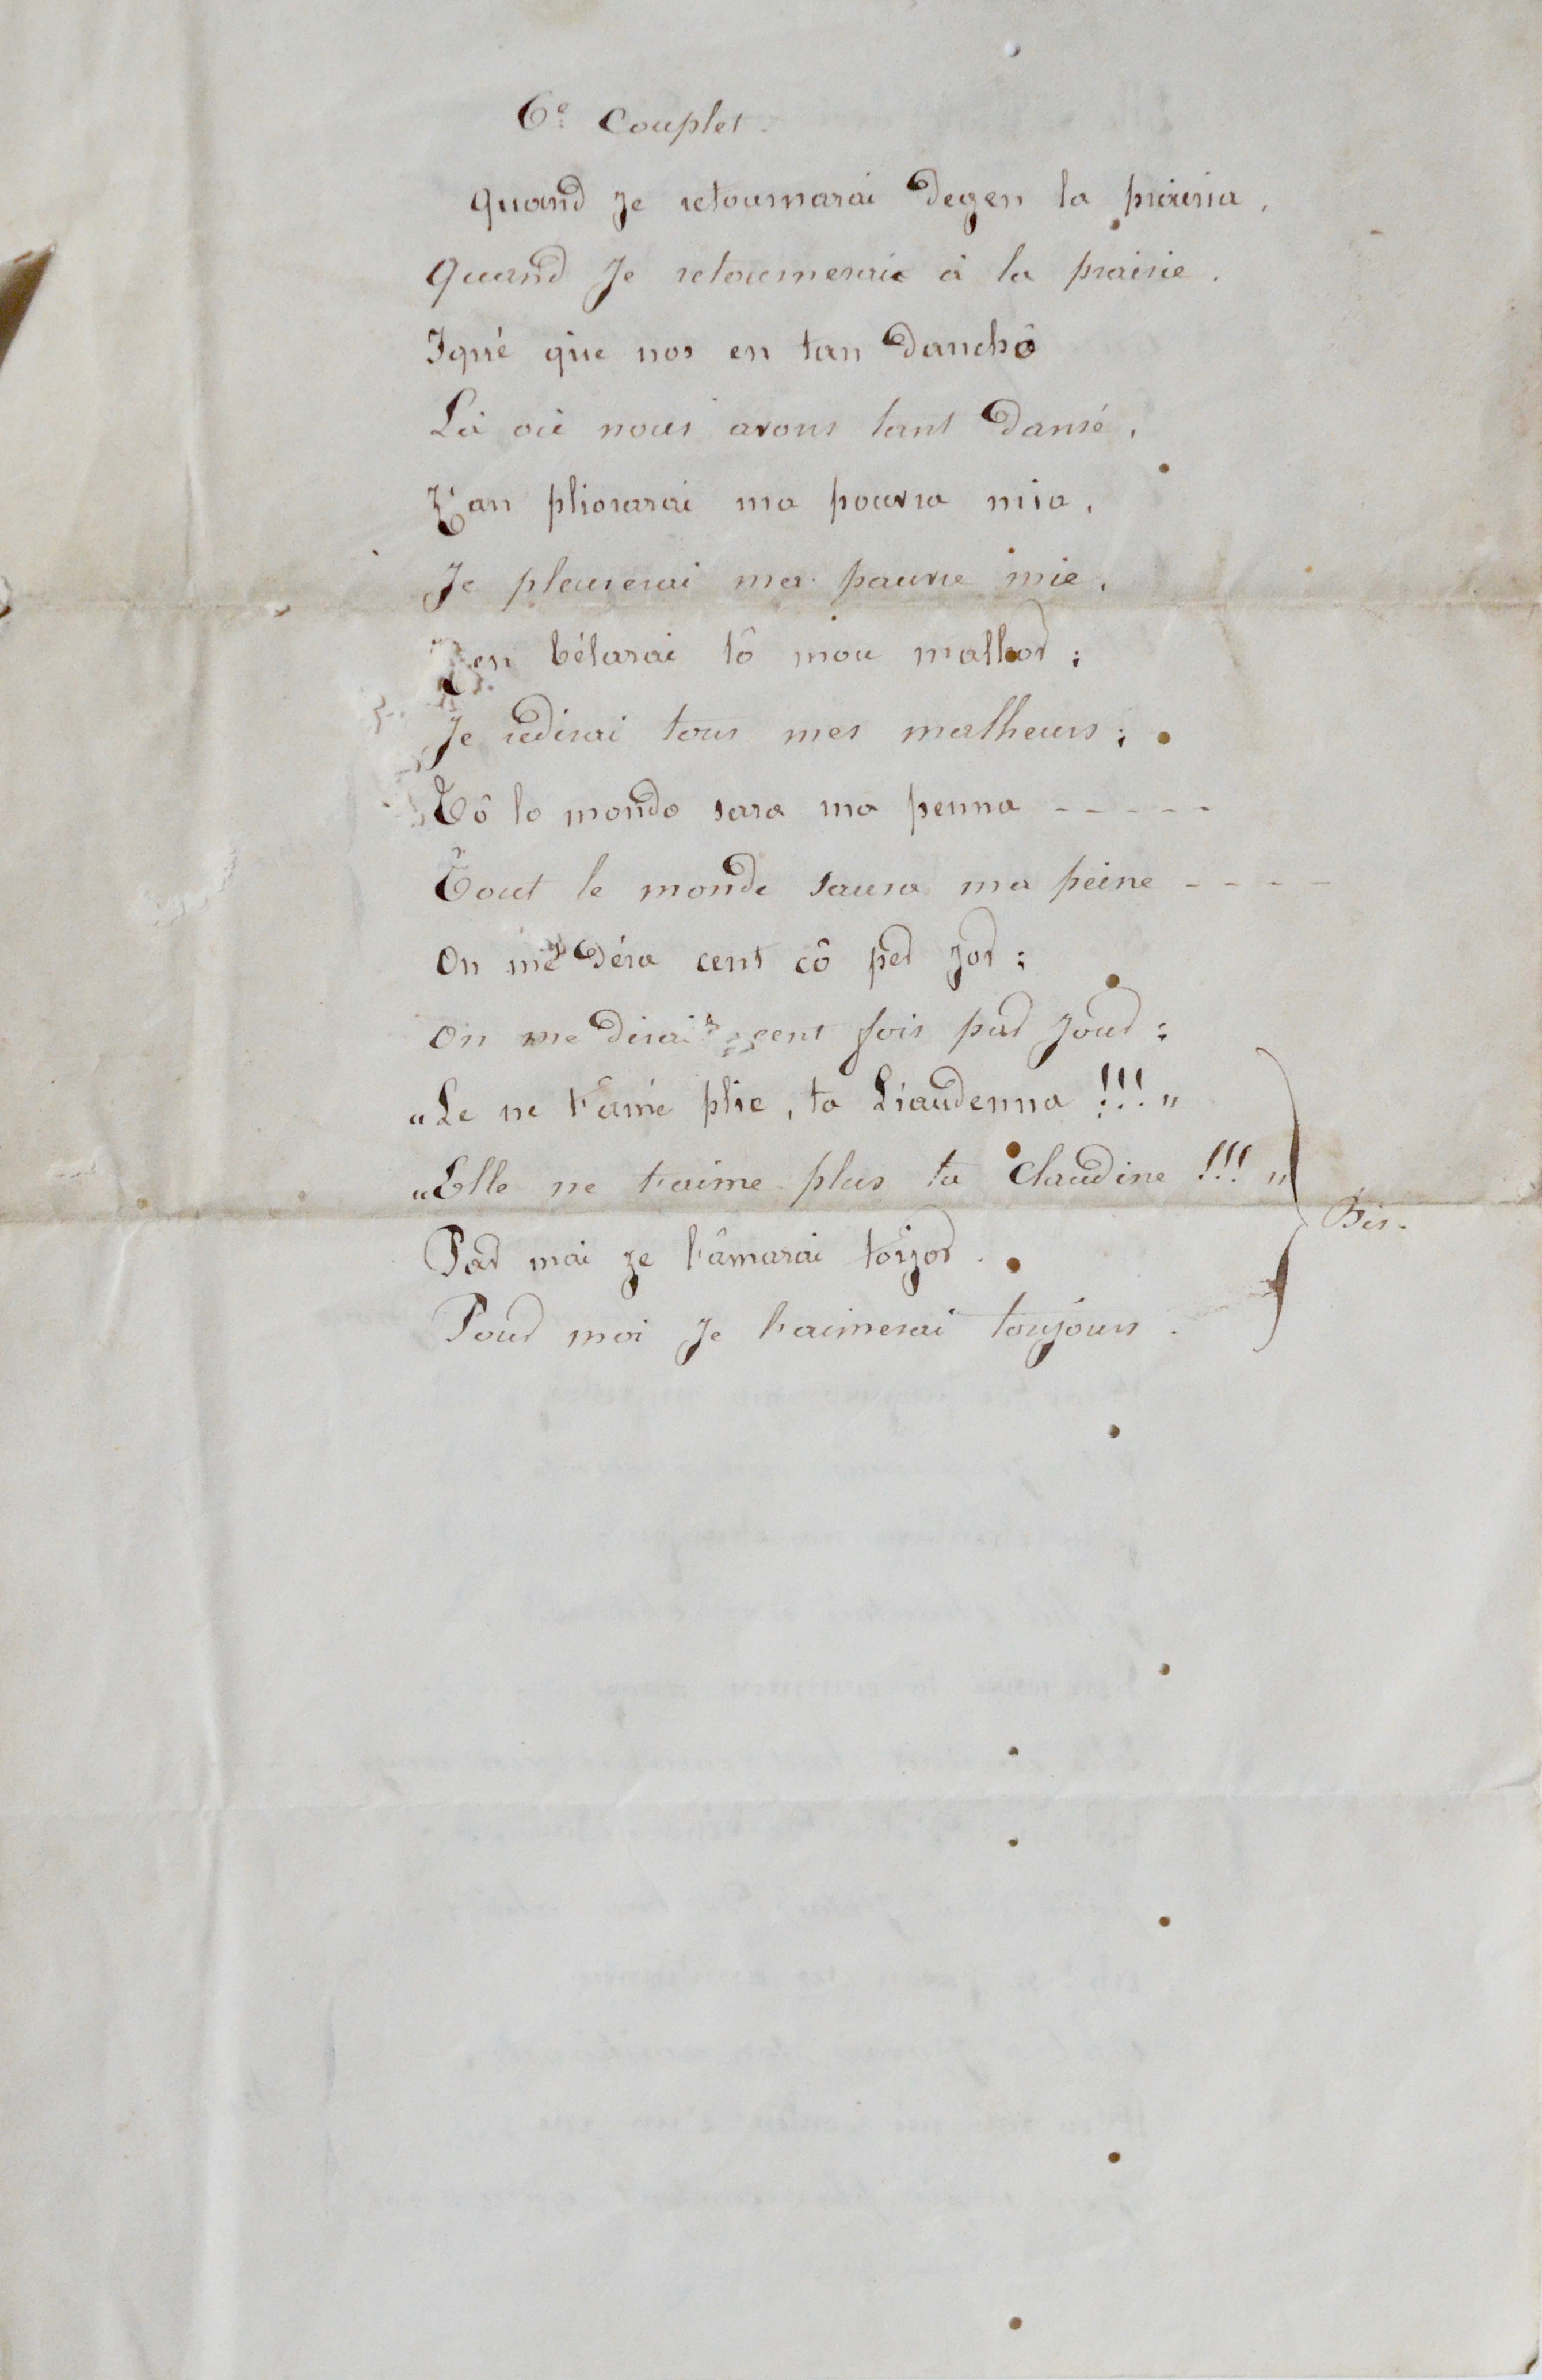 6e Couplet.
quand je retournarai degen la prairia,
quand Je retournerai à la prairie.
Iqué que nos en tan danchô
Là où nous avons tant dansé,
Z'an pliorarai ma pourra mia,
Je pleurerai ma pauvre mie,
en bélarai tô mou malhor ;
Je redirai tous mes malheurs ;
Tô lo mondo sara ma penna - - - - -
Tout le monde saura ma peine - - - -
On me déra cent cô per jor ;
on me dirai cent fois par jour ;
„Le ne t'amé plie, ta Liaudenna !!! „
„Elle ne t'aime plus ta Claudine !!! „
Par mai ze l'âmarai torjor.
Pour moi Je l'aimerai toujours.
Bis.